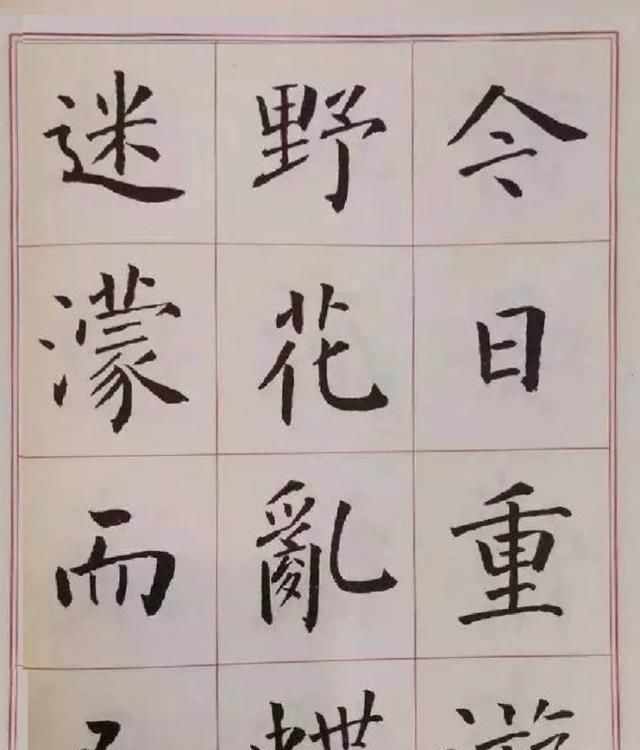 今日重遊
野花亂蝶
迷濛而